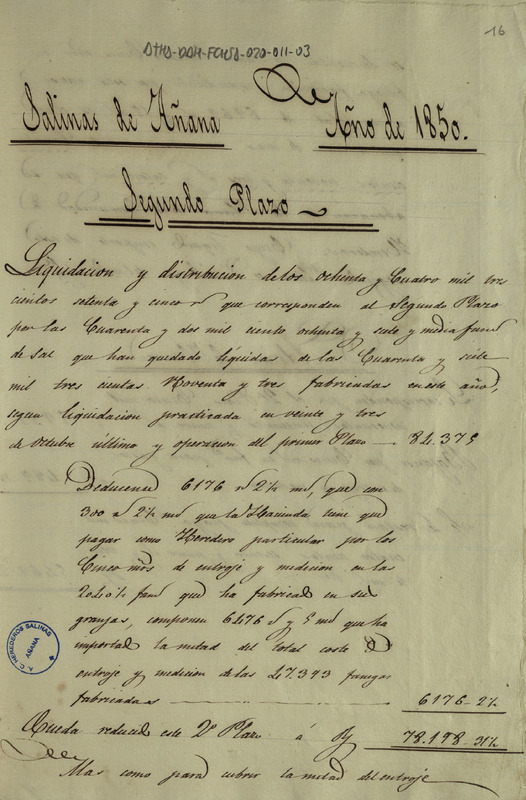 DTHD-DDH-FCHSA-020-011-03
16
Salinas de Añana
Año de 1850.
Segundo Plazo
Liquidacion y distribucion de los ochenta y Cuatro mil tres
cientos setenta y cinco rs que corresponden al Segundo Plazo
por las Cuarenta y dos mil ciento ochenta y siete y media fans
de sal que han quedado líquidas de las Cuarenta y siete
mil tres cientas Noventa y tres fabricadas en este año,
segun liquidacion practicada en veinte y tres
de Octubre último y operacion del primer Plazo 84.375
Deducense 6176 rs 2½ ms, que con
300 rs 2½ ms que la Hacienda tiene que
pagar como Heredero particular por los
Cinco mrs de entroje y medicion en las
2040½ fans que ha fabricado en sus
granjas, componen 6476 rs y 5 ms que ha
importado la mitad del total coste de
entroje y medicion de las 47.393 fanegas
fabricadas 6176-2½
Queda reducido este 2º Plazo á Rs 78.198-31½
Mas como para cubrir la mitad del entroje
A.C. HEREDEROS SALINAS
AÑANA